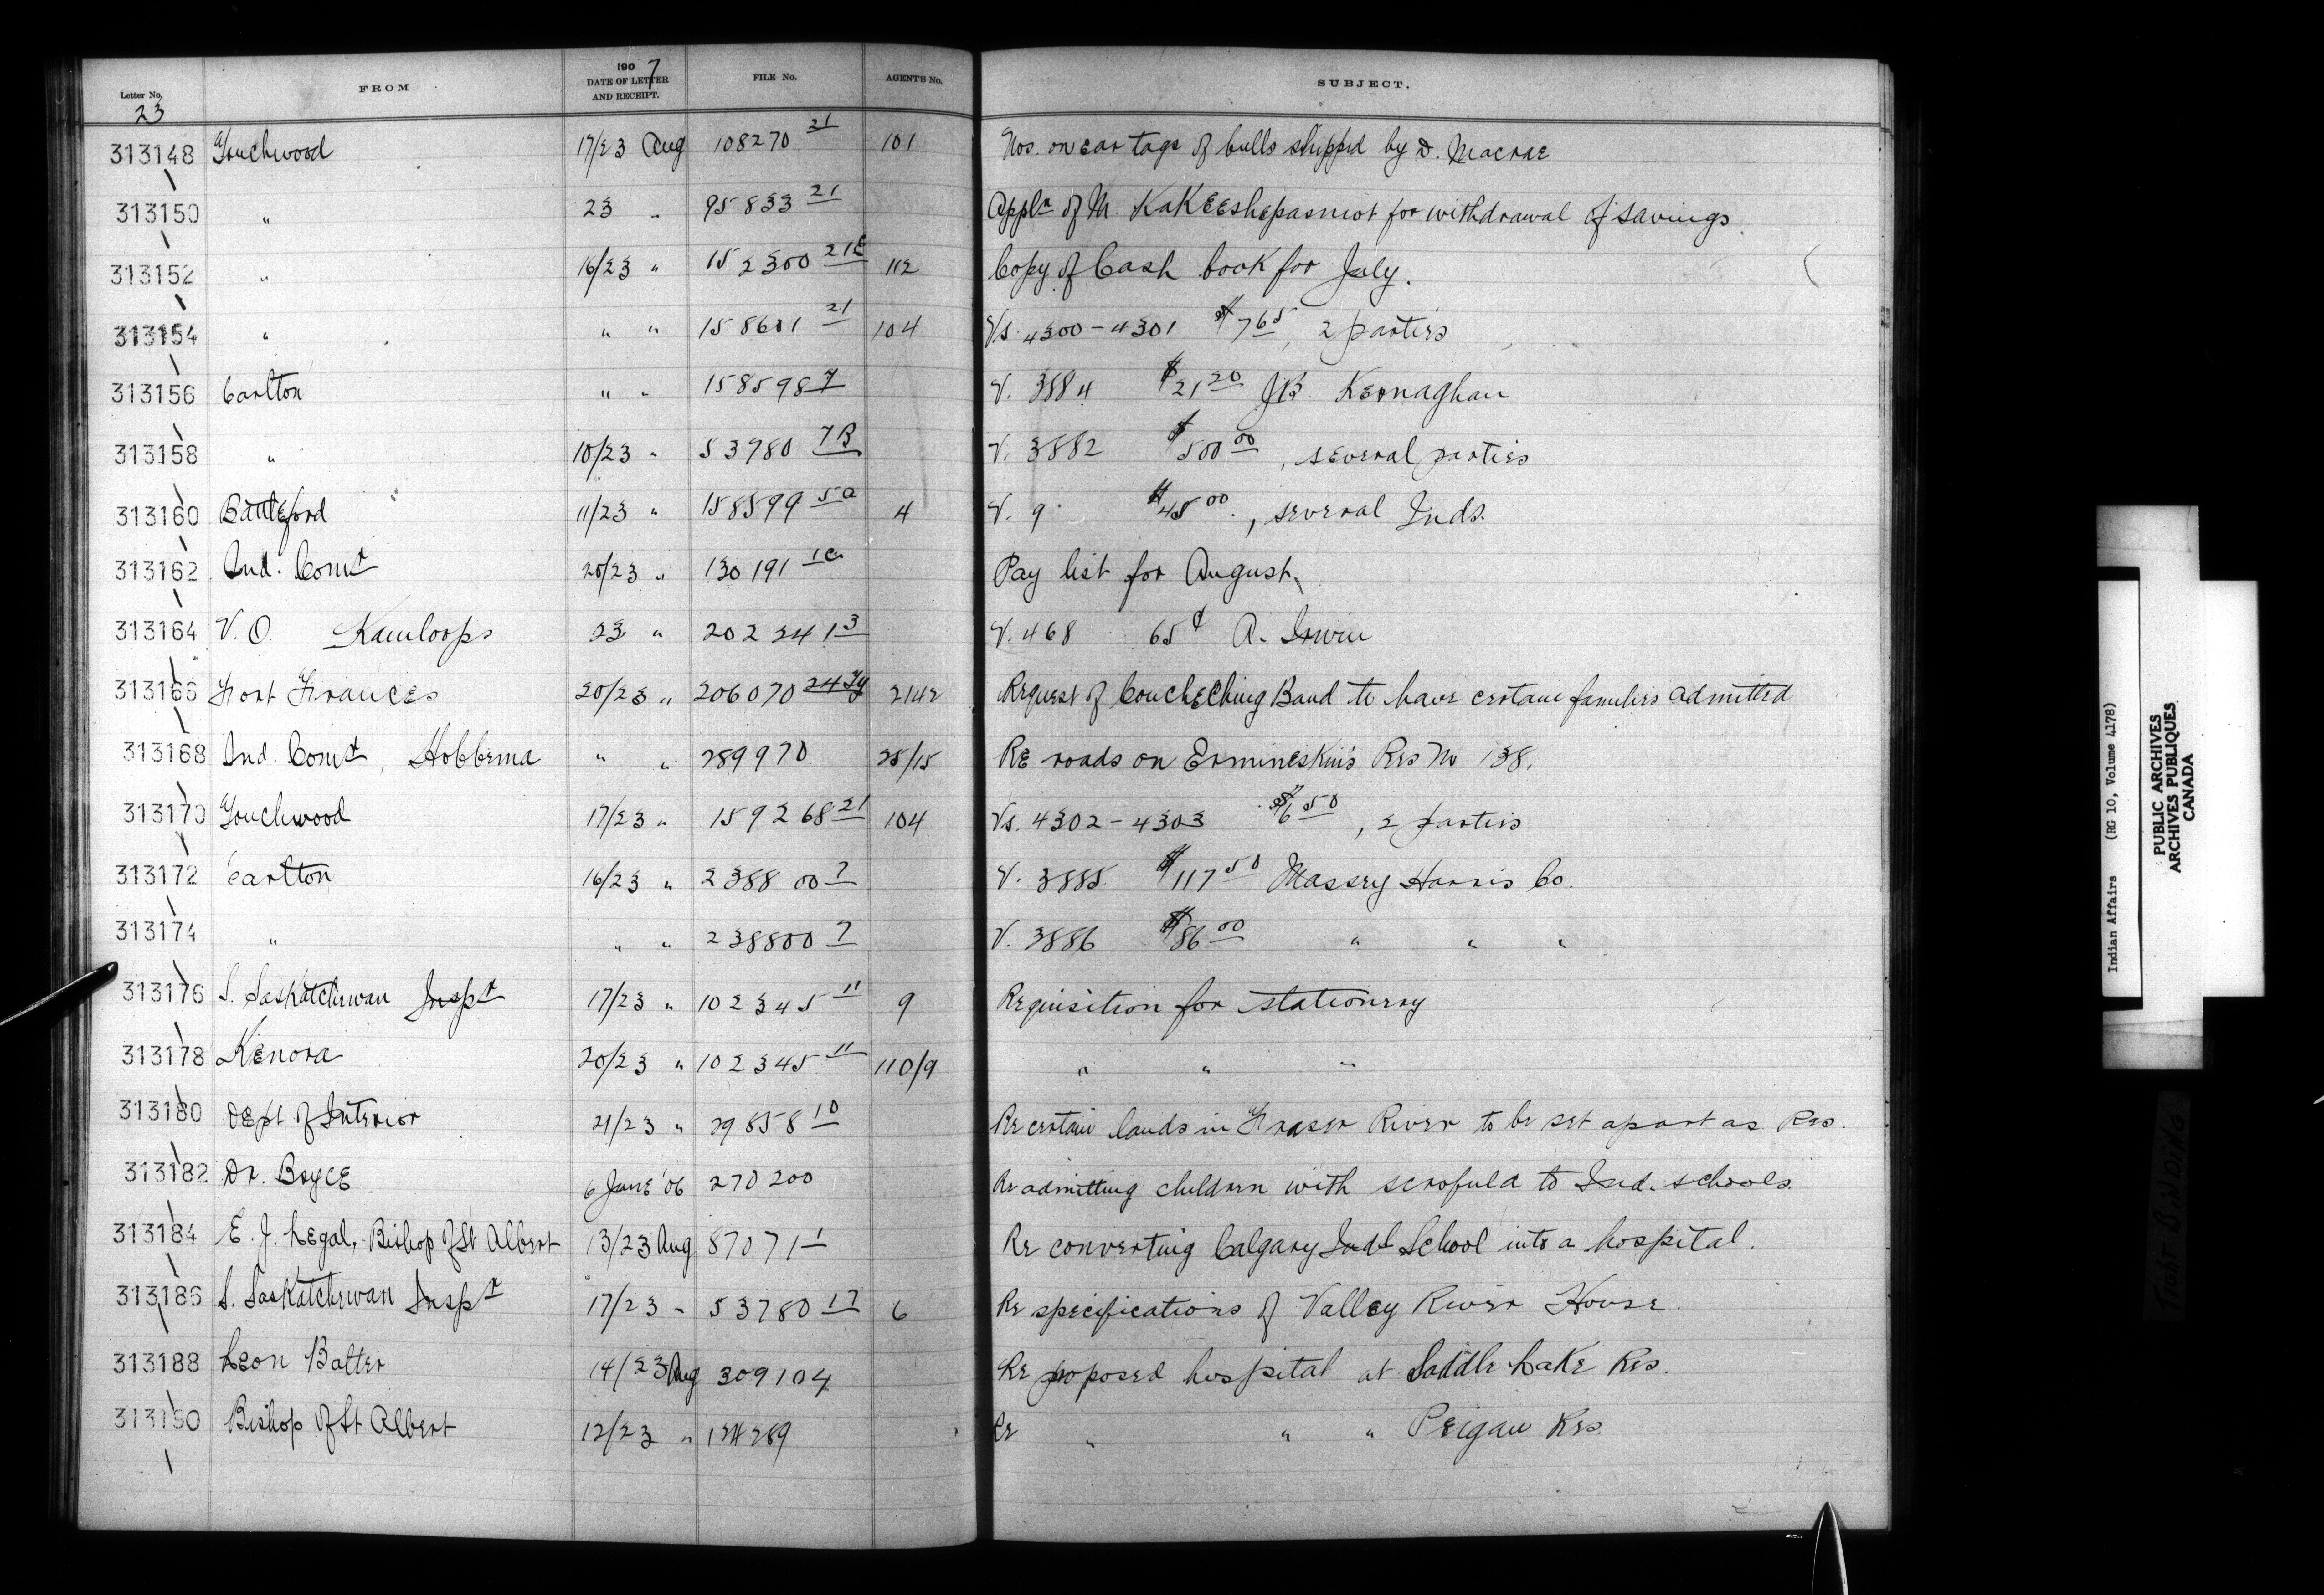 Letter No. FROM 1907 DATE OF LETTER AND RECEIPT. FILE No. AGENTS No. SUBJECT.
23
313148 Touchwood 17/23 Aug 108270 21 101 Nos. on ear tags of bulls shipped by D. Macrae
313150 " 23 " 95833 21 Appln of M. for withdrawal of savings.
313152 " 16/23 " 152300 21E 112 Copy of Cash book for July.
313154 " " " 158601 21 104 Vs. 4300-4301 $7 65, 2 parties
313156 Carlton " " 158598 7 V. 3884 $21 20 JB Kernaghan
313158 " 10/23 " 53780 7B V. 3882 $500 00, several parties
313160 Battleford 11/23 " 158599 5a 4 V. 9 $45 00, several Inds.
313162 Ind. Comr 20/23 " 130191 1c Pay list for August.
313164 V. O. Kamloops 23 " 202241 3 V. 468 65¢ A. Irwin
313166 Fort Frances 20/23 " 206070 2142 Request of Coucheching Band to have certain families admitted
313168 Ind. Comr, Hobbema " " 289970 25/15 Re roads on Ermineskin's Res No 138.
313170 Touchwood 17/23 " 159268 21 104 Vs. 4302-4303 $6 50, 2 parties
313172 Carlton 16/23 " 238800 7 V. 3885 $117 50 Massey Harris Co.
313174 " " " 238800 7 V. 3886 $86 00 " " "
313176 S. Saskatchewan Inspr 17/23 " 102345 11 9 Requisition for stationery
313178 Kenora 20/23 " 102345 11 110/9 " " "
313180 Dept of Interior 21/23 " 29858 10 Re certain lands in Fraser River to be set apart as Res.
313182 Dr. Bryce 6 June '06 270200 Re admitting children with scrofula to Ind. schools.
313184 E. J. Legal, Bishop of St Albert 13/23 Aug 87071 1 Re converting Calgary Indl School into a hospital.
313186 S. Saskatchewan Inspr 17/23 " 53780 17 6 Re specifications of Valley River House.
313188 Leon Balter 14/23 Aug 309104 Re proposed hospital at Saddle Lake Res.
313190 Bishop of St Albert 12/23 " Re " " " Peigan Res.
Indian Affairs (RG 10, Volume 4178)
PUBLIC ARCHIVES
ARCHIVES PUBLIQUES
CANADA
TIGHT BINDING